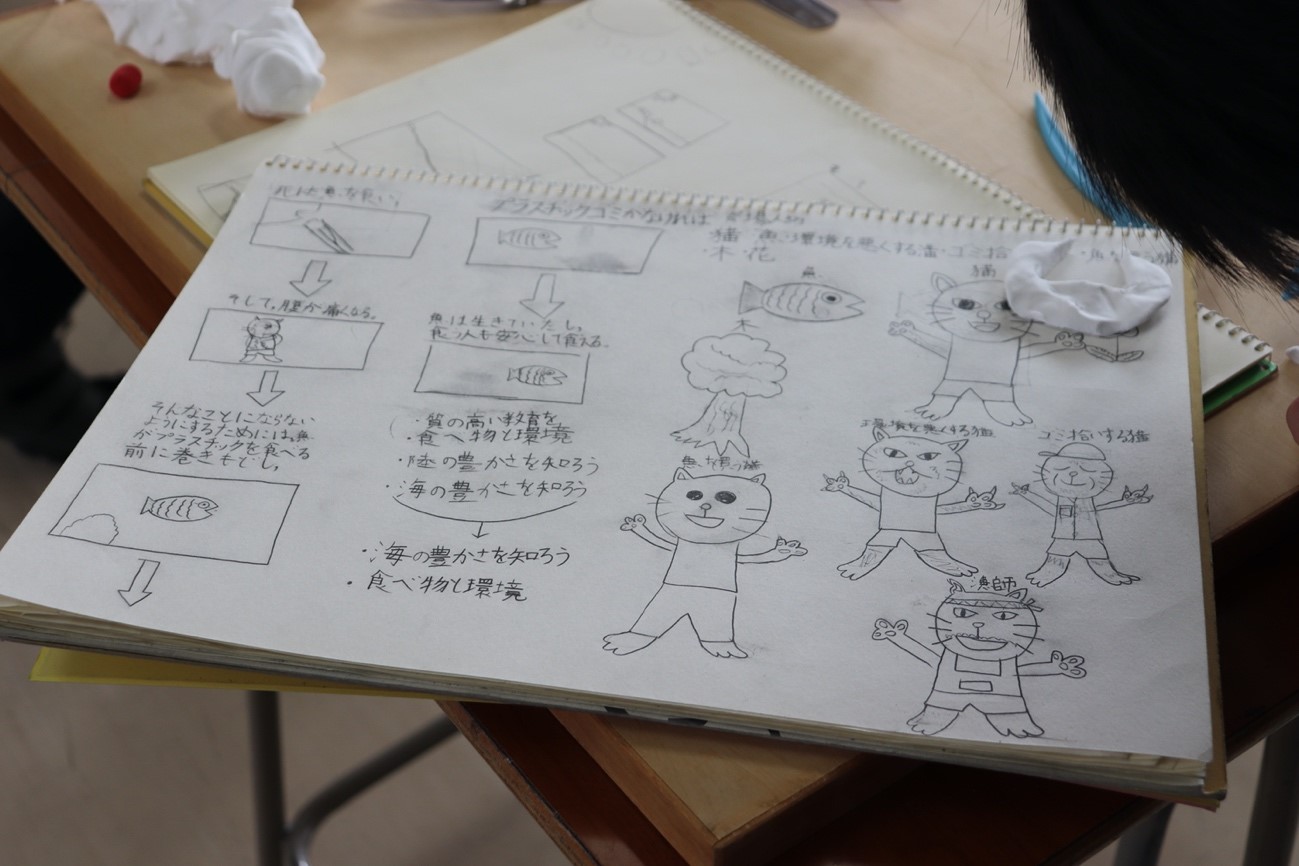 そして、腹が痛くなる。
そんなことにならない
ようにするためには、魚
がプラスチックを食べる
前に巻きもどし、
プラスチックゴミがなければ
魚は生きていたし、
食う人も安心して食える。
・質の高い教育を
・食べ物と環境
・陸の豊かさを知ろう
・海の豊かさを知ろう
・海の豊かさを知ろう
・食べ物と環境
猫 環境を悪くする猫・ゴミ拾
・木・花
魚
猫
木
環境を悪くする猫
ゴミ拾いする猫
漁師